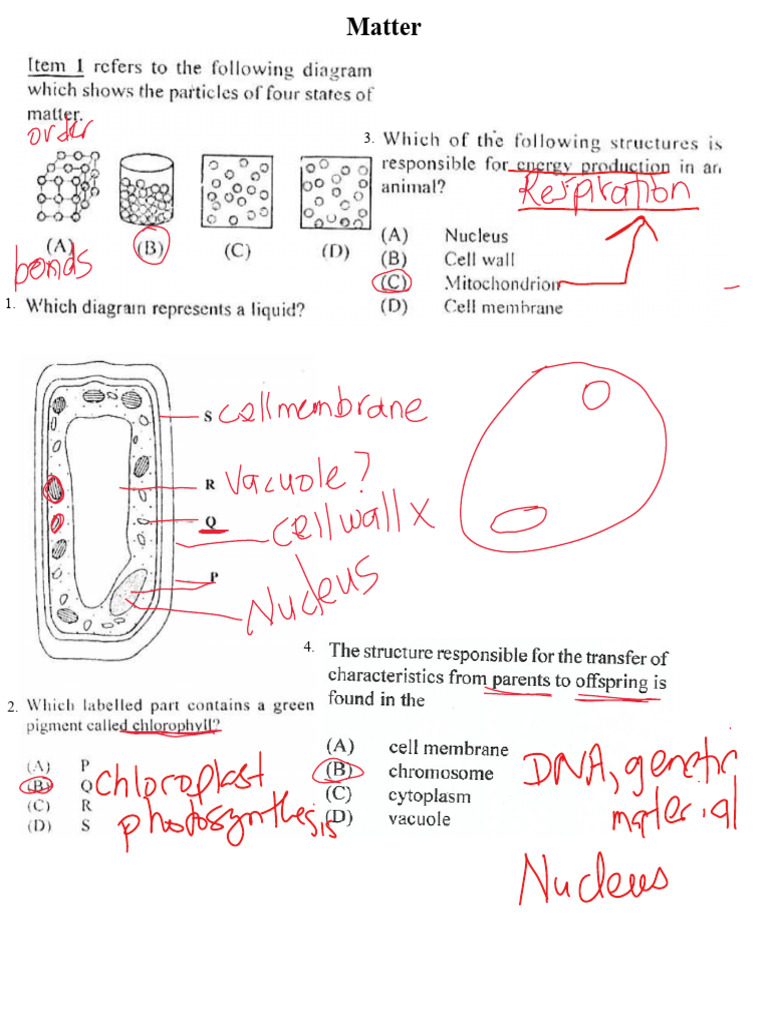 Matter
Item 1 refers to the following diagram
which shows the particles of four states of
matter.
order
(A) (B) (C) (D)
bonds
1. Which diagram represents a liquid?
3. Which of the following structures is
responsible for energy production in an
animal?
Respiration
(A) Nucleus
(B) Cell wall
(C) Mitochondrion
(D) Cell membrane
S cell membrane
R Vacuole?
Q
cell wall x
P
Nucleus
2. Which labelled part contains a green
pigment called chlorophyll?
(A) P
(B) Q chloroplast
(C) R
photosynthesis
(D) S
4. The structure responsible for the transfer of
characteristics from parents to offspring is
found in the
(A) cell membrane
(B) chromosome
(C) cytoplasm
(D) vacuole
DNA, genetic
material
Nucleus